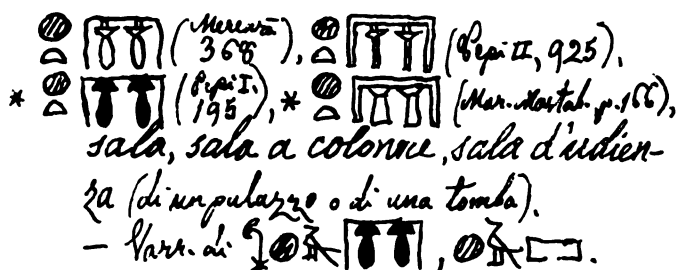 (Merenrā 368), (Pepi II, 925),
* (Pepi I, 195), * (Mar. Mastab. p. 166),
sala, sala a colonne, sala d'udien-
za (di un palazzo o di una tomba).
— Varr. di * , .